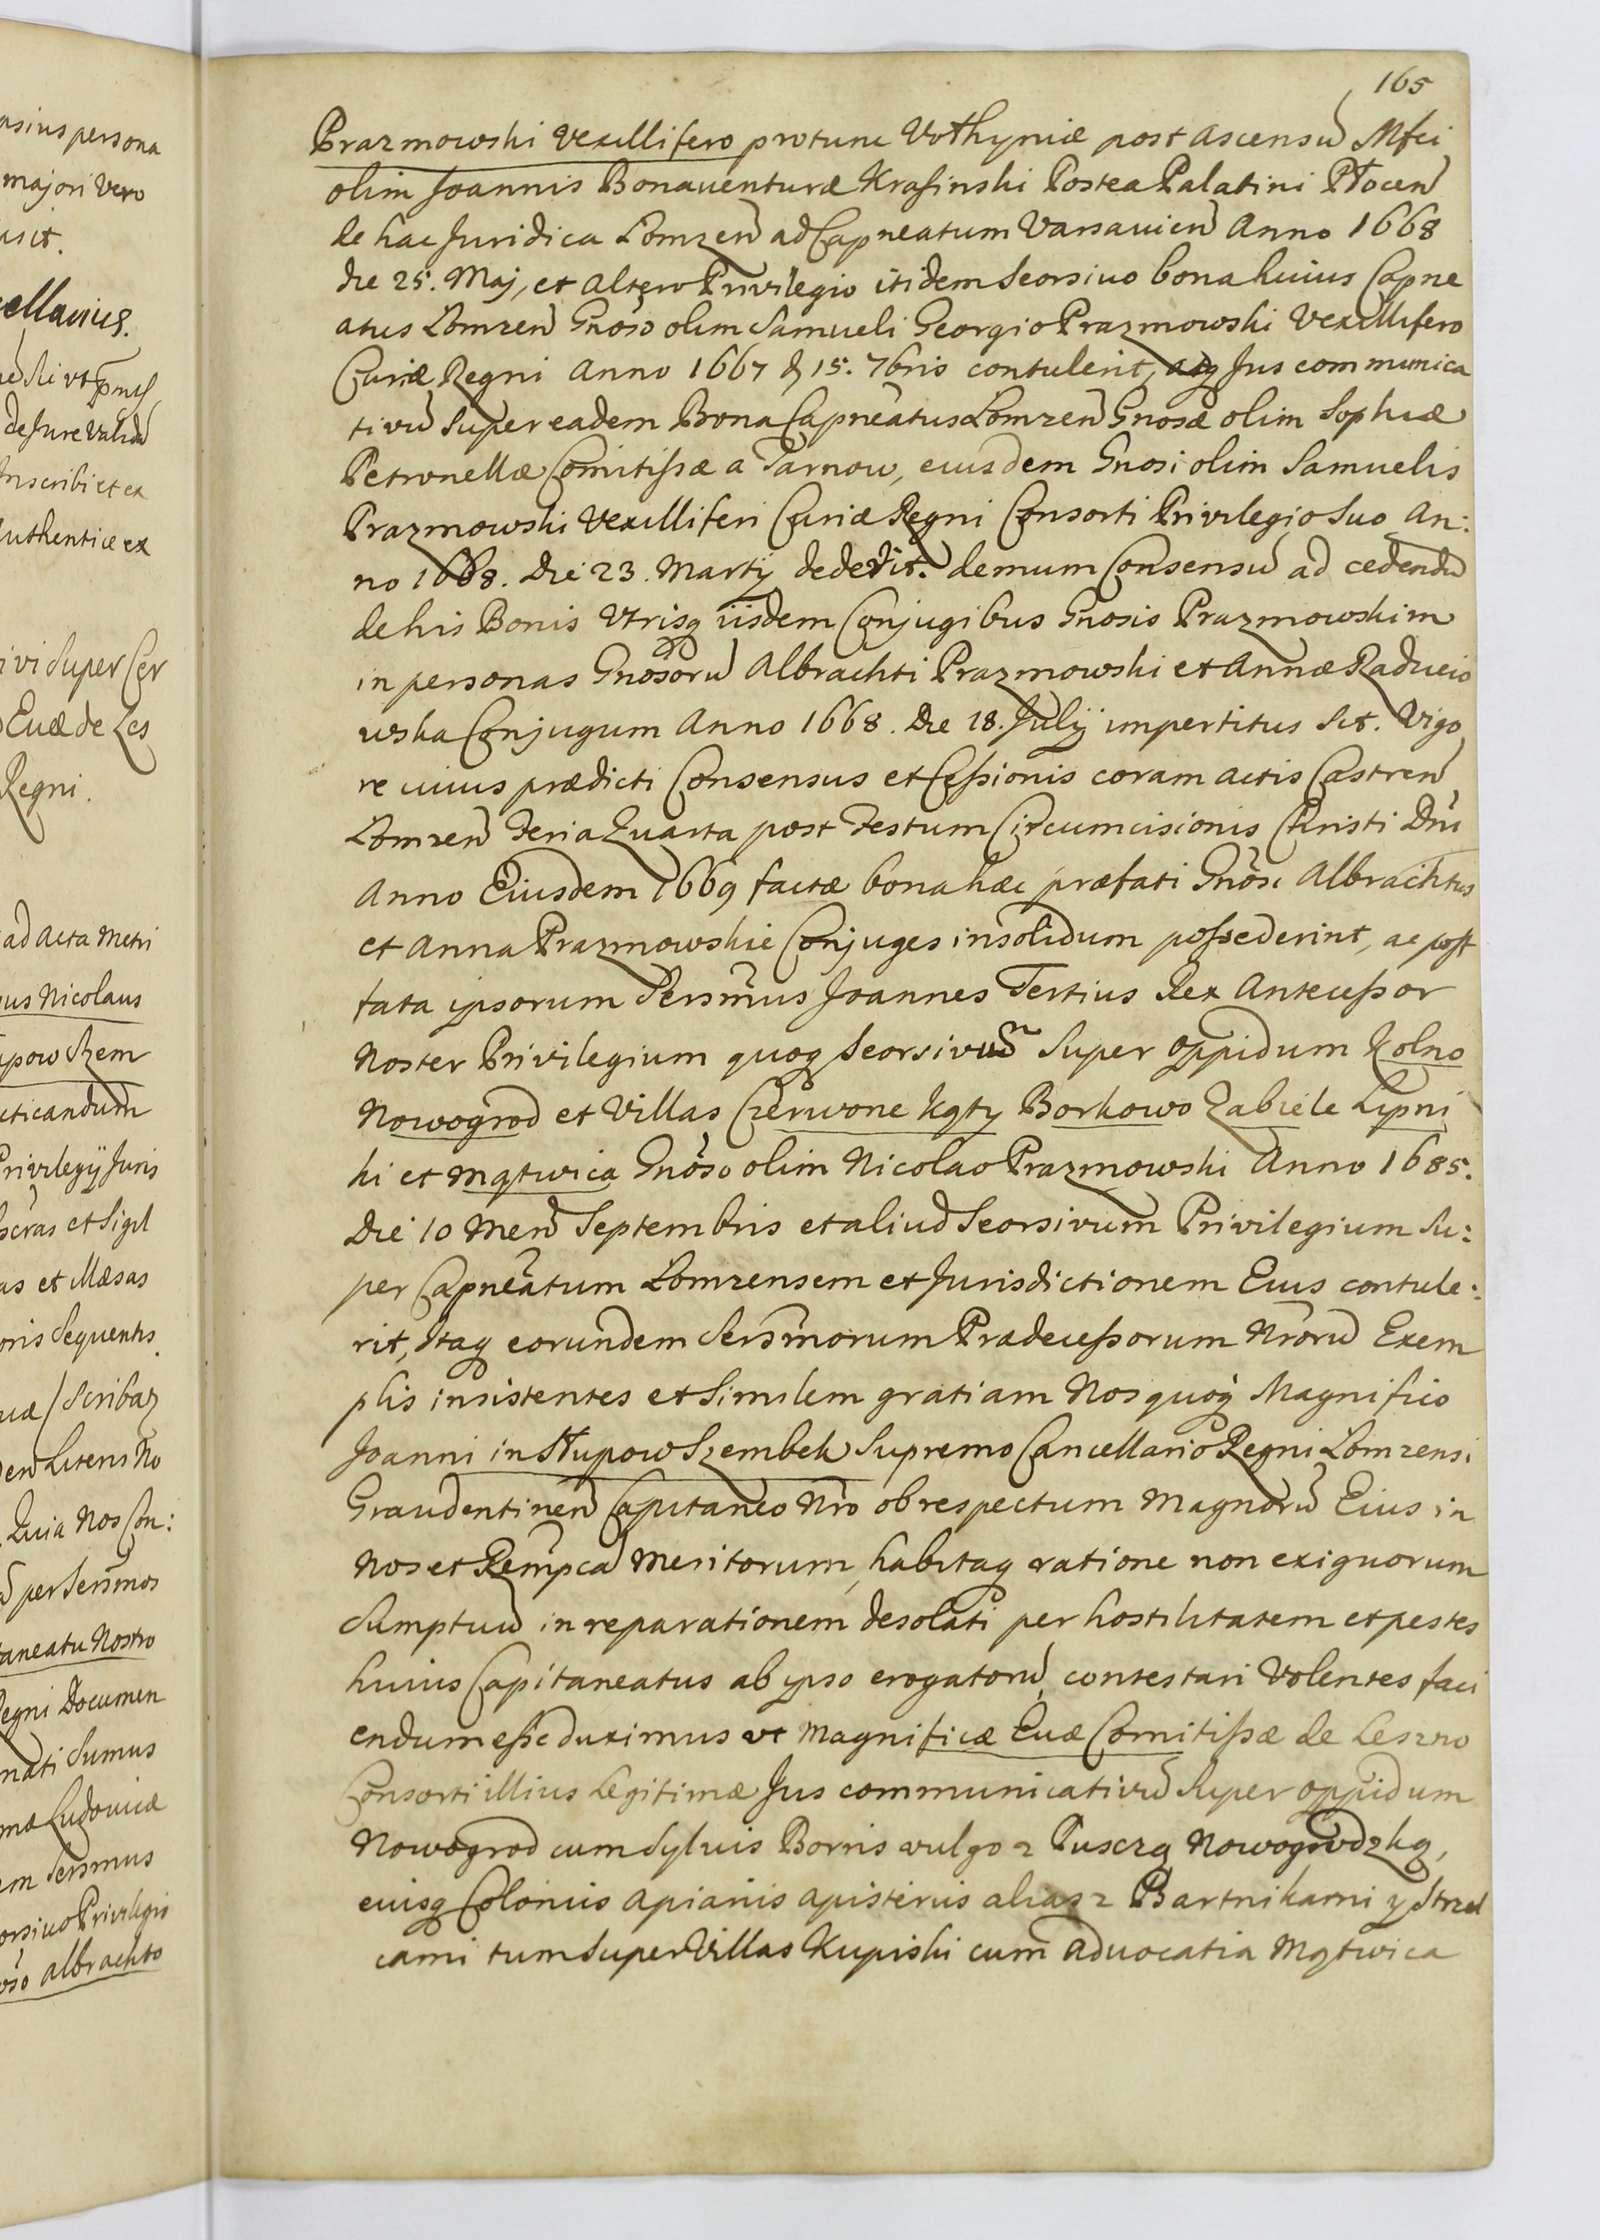 asius persona
majori Vero
usit.
cellarius.
de Jure Validu
Inscribi et ex
Authentice ex
ivi Super Cer
Evæ de Les
Regni.
ad Acta Metri
us Nicolaus
upow Szem
cticandum
Privilegij Juris
scras et Sigil
as et Massas
oris Sequentis
uæ / Scribaz
en Literis No
Quia Nos Con:
per Sermos
taneatu Nostro
Regni Documen
nati Sumus
ma Ludovica
m Sersmus
orsivo Privilegio
oso Albrachto
165
Prazmowski Vexillifero protunc Vołhyniæ post Ascensũ Mfci
olim Joannis Bonaventuræ Krasinski Postea Palatini Płocen
de hac Juridica Lomzen ad Capneatum Varsavien Anno 1668
die 25. Maj, et Altero Privilegio itidem Seorsivo bona huius Capne
atus Lomzen Gnoso olim Samueli Georgio Prazmowski Vexillifero
Curiæ Regni Anno 1667 d 15. 7bris contulerit, adq Jus communica
tivũ Super eadem Bona Capneatus Lomzen Gnosæ olim Sophiæ
Petronellæ Comitissæ a Tarnow, eiusdem Gnosi olim Samuelis
Prazmowski Vexilliferi Curiæ Regni Consorti Privilegio Suo An:
no 1668. Die 23. Martij dederit. demum Consensũ ad cedendũ
de his Bonis Vtrisq iisdem Conjugibus Gnosis Prazmowskim
in personas Gnosorũ Albrachti Prazmowski et Annæ Radzieio
wska Conjugum Anno 1668. Die 18. Julij impertitus Sit. Vigo
re cuius prædicti Consensus et Cessionis coram Actis Castren
Lomzen Feria Quarta post Festum Circumcisionis Christi Dni
Anno Eiusdem 1669 factæ bona hæc præfati Gnosi Albrachtus
et Anna Prazmowskie Conjuges insolidum possederint, ac post
fata ipsorum Sersmus Joannes Tertius Rex Antecessor
Noster Privilegium quoq Seorsivũ Super oppidum Kolno
Nowogrod et Villas Czerwone Kąty Borkowo Zabiele Lipni
ki et Mątwica Gnoso olim Nicolao Prazmowski Anno 1685.
Die 10 Men Septembris et aliud Seorsivum Privilegium Su:
per Capneatum Lomzensem et Jurisdictionem Eius contule:
rit, Itaq eorundem Sersmorum Prædecessorum Nrorũ Exem
plis insistentes et Similem gratiam Nos quoq Magnifico
Joanni in Słupow Szembek Supremo Cancellario Regni Lomzensi
Graudentinen Capitaneo Nro ob respectum Magnorũ Eius in
Nos et Rempcã Meritorum, habitaq ratione non exiguorum
Sumptuũ in reparationem desolati per hostilitatem et pestes
huius Capitaneatus ab ipso erogatorũ, contestari Volentes faci
endum esse duximus vt Magnificæ Evæ Comitissæ de Leszno
Consorti illius Legitimæ Jus communicativũ Super oppidum
Nowogrod cum Sylvis Borris vulgo z Puszczą Nowogrodzką,
eiusq Colonis Apianis apisteriis alias z Bartnikami y Strzel
cami tum Super Villas Kupiski cum Advocatia Mątwica